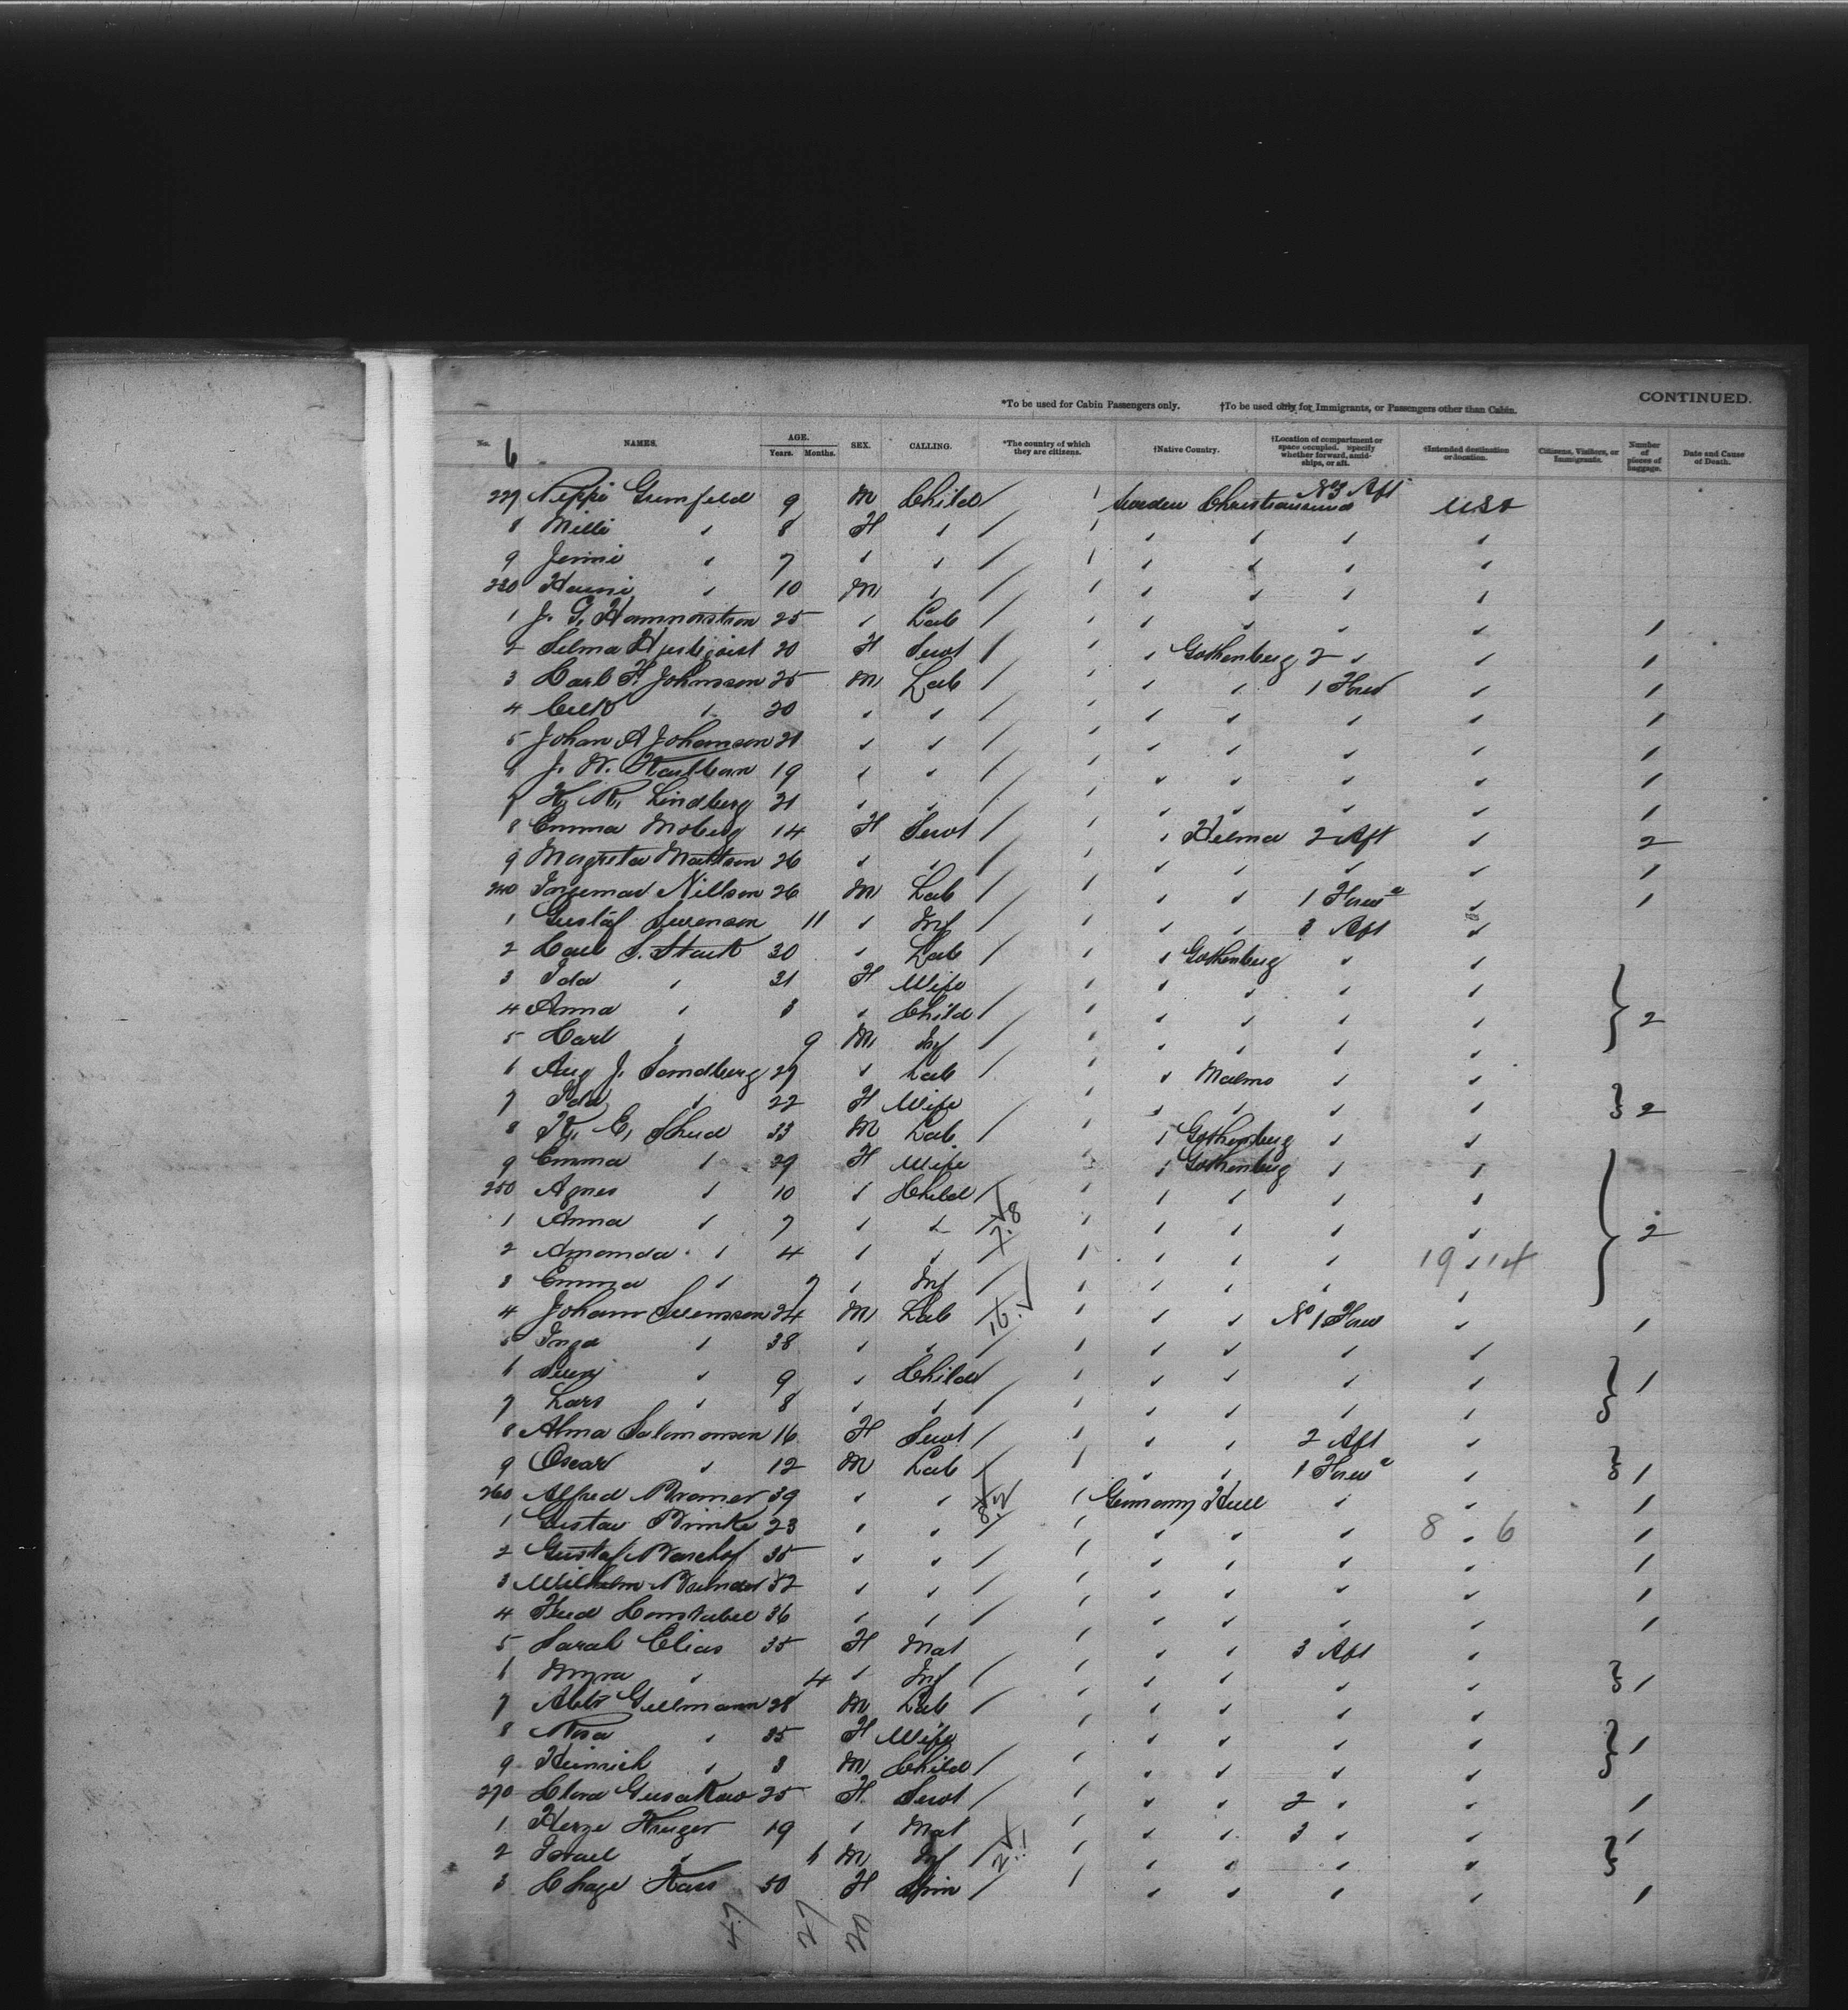 CONTINUED.
*To be used for Cabin Passengers only. †To be used only for Immigrants, or Passengers other than Cabin.
No. NAMES. AGE. Years. Months. SEX. CALLING. *The country of which they are citizens. †Native Country. †Location of compartment or space occupied. Specify whether forward, amidships, or aft. †Intended destination or location. Citizens, Visitors, or Immigrants. Number of pieces of baggage. Date and Cause of Death.
6
227 9 M Child Sweden Christiansund No 3 Aft USA
8 Milli " 8 F "
9 Jenni " 7 " "
230 " 10 M "
1 J. G. 25 " Lab 1
2 Selma 20 F Servt " Gothenberg 2 " 1
3 Carl F. Johnsson 25 M Lab 1 Forwd 1
4 " 20 " " 1
5 Johan A Johansson 21 " " 1
6 J. W. 19 " " 1
7 K. R. Lindberg 21 " " 1
8 Emma Moberg 14 F Servt " 2 Aft 2
9 Margreta Mattson 26 " " 1
240 Ingemar Nillson 26 M Lab 1 Forwd 1
1 Gustaf Svenson 11 " Inf 3 Aft
2 Carl S. Stark 30 " Lab " Gothenberg "
3 Ida " 31 F Wife
4 Anna " 3 " Child 2
5 Carl " 9 M Inf
6 Aug J. Sandberg 27 " Lab " Malmo "
7 Ida " 22 F Wife 2
8 K. E. 33 M Lab " Gothenberg "
9 Emma " 29 F Wife " Gothenberg "
250 Agnes " 10 " Child
1 Anna " 7 " " 7.8 2
2 Amanda " 4 " " 19 " 14
3 Emma " 7 " Inf
4 Johann Svensson 24 M Lab 16 No 1 Forwd 1
5 Inga " 38 " "
6 " 9 " Child 1
7 Lars " 8 " "
8 Alma Salomonson 16 F Servt 2 Aft
9 Oscar " 12 M Lab 1 Forwd 1
260 Alfred 39 " " 8.2 Germany Hull " 1
1 Gustav 23 " " 8 " 6 1
2 Gustaf 35 " " 1
3 Wilhelm 32 " " 1
4 36 " " 1
5 Sarah Elias 35 F Mat 3 Aft
6 Myra " 4 " Inf 1
7 Gellmann 28 M Lab
8 Rosa " 25 F Wife 1
9 Heinrich " 3 M Child
270 Clara 25 F Servt 2 " 1
1 Kruger 19 " Mat 3 " 1
2 Israel " 6 M Inf 2.1
3 Kass 50 F Spin 1
47 27 20